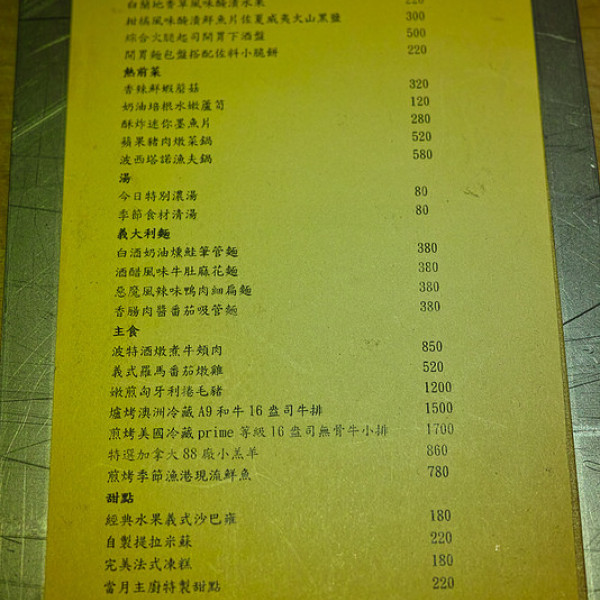 白蘭地香草風味醃漬水果 220
柑橘風味醃漬鮮魚片佐夏威夷火山黑鹽 300
綜合火腿起司開胃下酒盤 500
開胃麵包盤搭配佐料小脆餅 220
熱前菜
香辣鮮蝦蘑菇 320
奶油培根水嫩蘆筍 120
酥炸迷你墨魚片 280
蘋果豬肉燉菜鍋 520
波西塔諾漁夫鍋 580
湯
今日特別濃湯 80
季節食材清湯 80
義大利麵
白酒奶油燻鮭筆管麵 380
酒醋風味牛肚麻花麵 380
惡魔風辣味鴨肉細扁麵 380
香腸肉醬番茄吸管麵 380
主食
波特酒燉煮牛頰肉 850
義式羅馬番茄燉雞 520
嫩煎匈牙利捲毛豬 1200
爐烤澳洲冷藏A9和牛16盎司牛排 1500
煎烤美國冷藏prime等級16盎司無骨牛小排 1700
特選加拿大88廠小羔羊 860
煎烤季節漁港現流鮮魚 780
甜點
經典水果義式沙巴雍 180
自製提拉米蘇 220
完美法式凍糕 180
當月主廚特製甜點 220